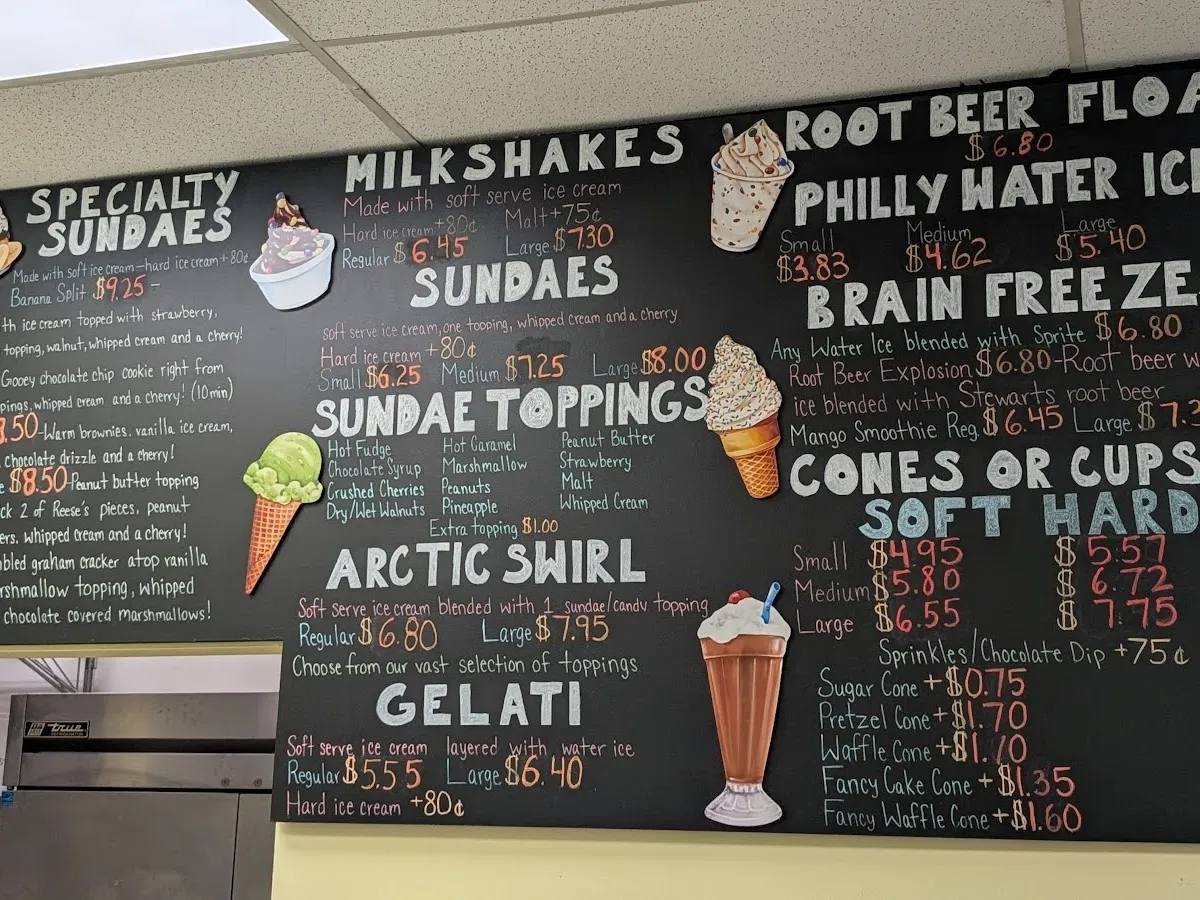 SPECIALTY
SUNDAES
Made with soft ice cream—hard ice cream +80¢
Banana Split $9.25 –
th ice cream topped with strawberry,
topping, walnut, whipped cream and a cherry!
Gooey chocolate chip cookie right from
pings, whipped cream and a cherry! (10 min)
8.50-Warm brownies, vanilla ice cream,
chocolate drizzle and a cherry!
e $8.50-Peanut butter topping
ck 2 of Reese's pieces, peanut
ers, whipped cream and a cherry!
bled graham cracker atop vanilla
rshmallow topping, whipped
chocolate covered marshmallows!
MILKSHAKES
Made with soft serve ice cream
Hard ice cream +80¢ Malt +75¢
Regular $6.45 Large $7.30
SUNDAES
soft serve ice cream, one topping, whipped cream and a cherry
Hard ice cream +80¢
Small $6.25 Medium $7.25 Large $8.00
SUNDAE TOPPINGS
Hot Fudge Hot Caramel Peanut Butter
Chocolate Syrup Marshmallow Strawberry
Crushed Cherries Peanuts Malt
Dry/Wet Walnuts Pineapple Whipped Cream
Extra topping $1.00
ARCTIC SWIRL
Soft serve ice cream blended with 1 sundae/candy topping
Regular $6.80 Large $7.95
Choose from our vast selection of toppings
GELATI
Soft serve ice cream layered with water ice
Regular $5.55 Large $6.40
Hard ice cream +80¢
ROOT BEER FLOA
$6.80
PHILLY WATER ICE
Small Medium Large
$3.83 $4.62 $5.40
BRAIN FREEZE
Any Water Ice blended with Sprite $6.80
Root Beer Explosion $6.80-Root beer w
ice blended with Stewarts root beer
Mango Smoothie Reg. $6.45 Large $7.3
CONES OR CUPS
SOFT HARD
Small $4.95 $5.57
Medium $5.80 $6.72
Large $6.55 $7.75
Sprinkles/Chocolate Dip +75¢
Sugar Cone +$0.75
Pretzel Cone +$1.70
Waffle Cone +$1.10
Fancy Cake Cone +$1.35
Fancy Waffle Cone +$1.60
true